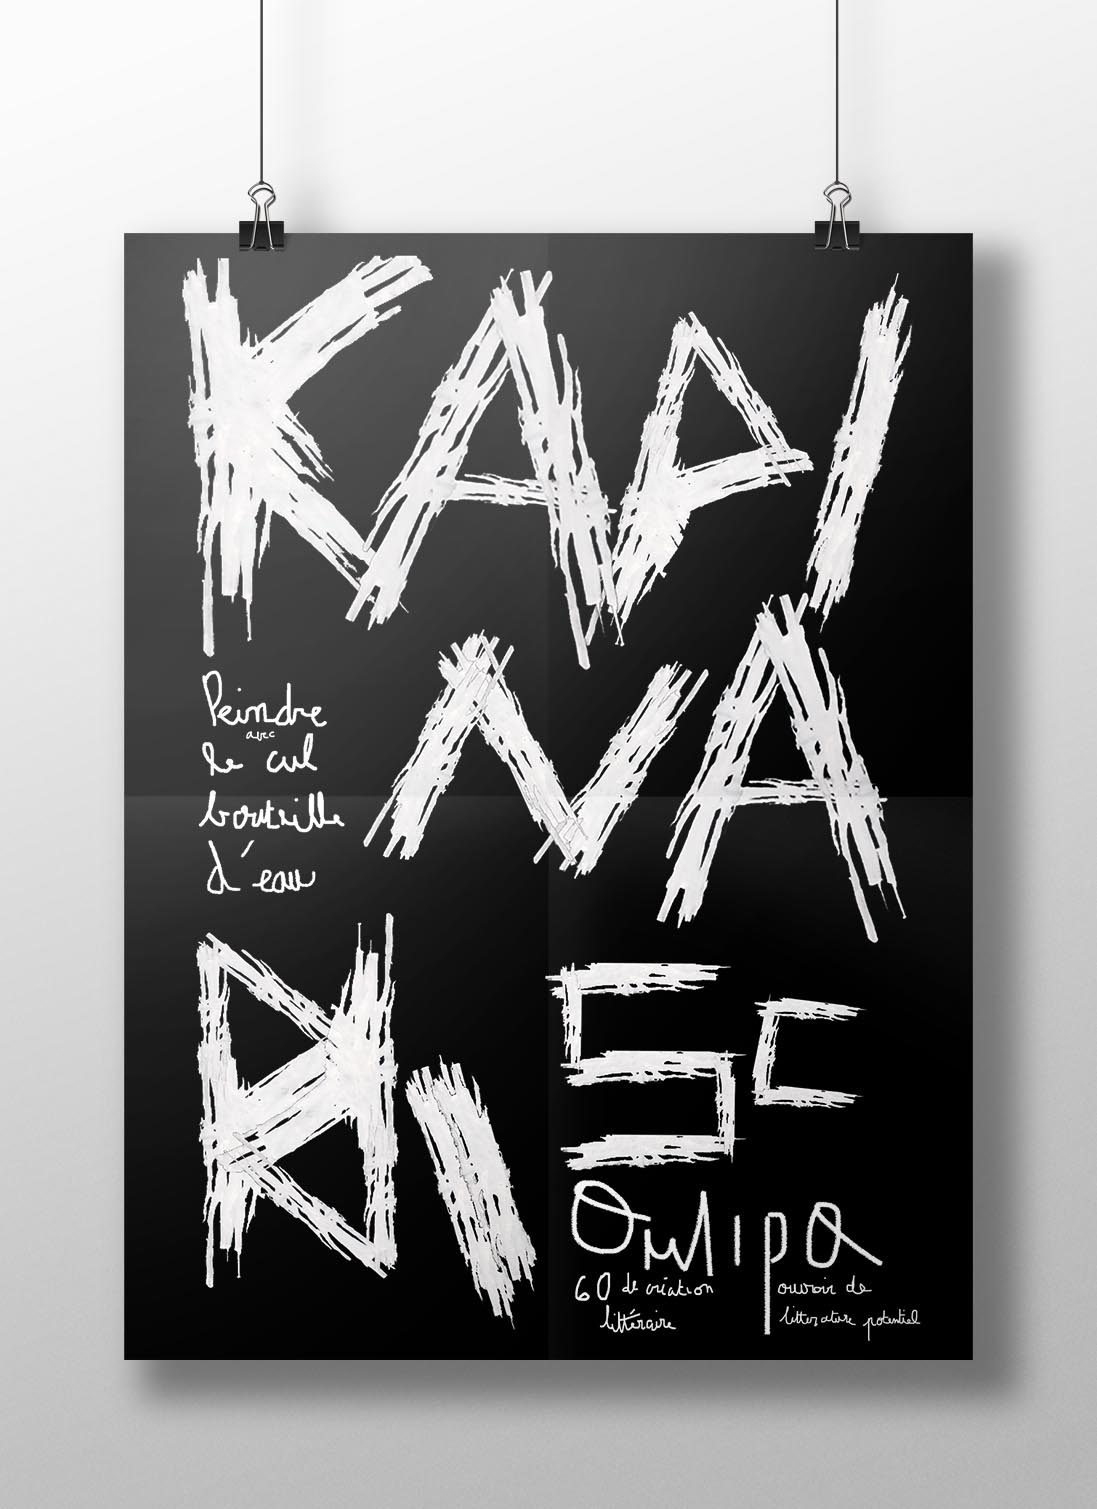 KAPI
NA
Peindre
avec
le cul
bouteille
d'eau
SC
Oulipo
60 de création
littéraire
ouvroir de
litterature potentiel